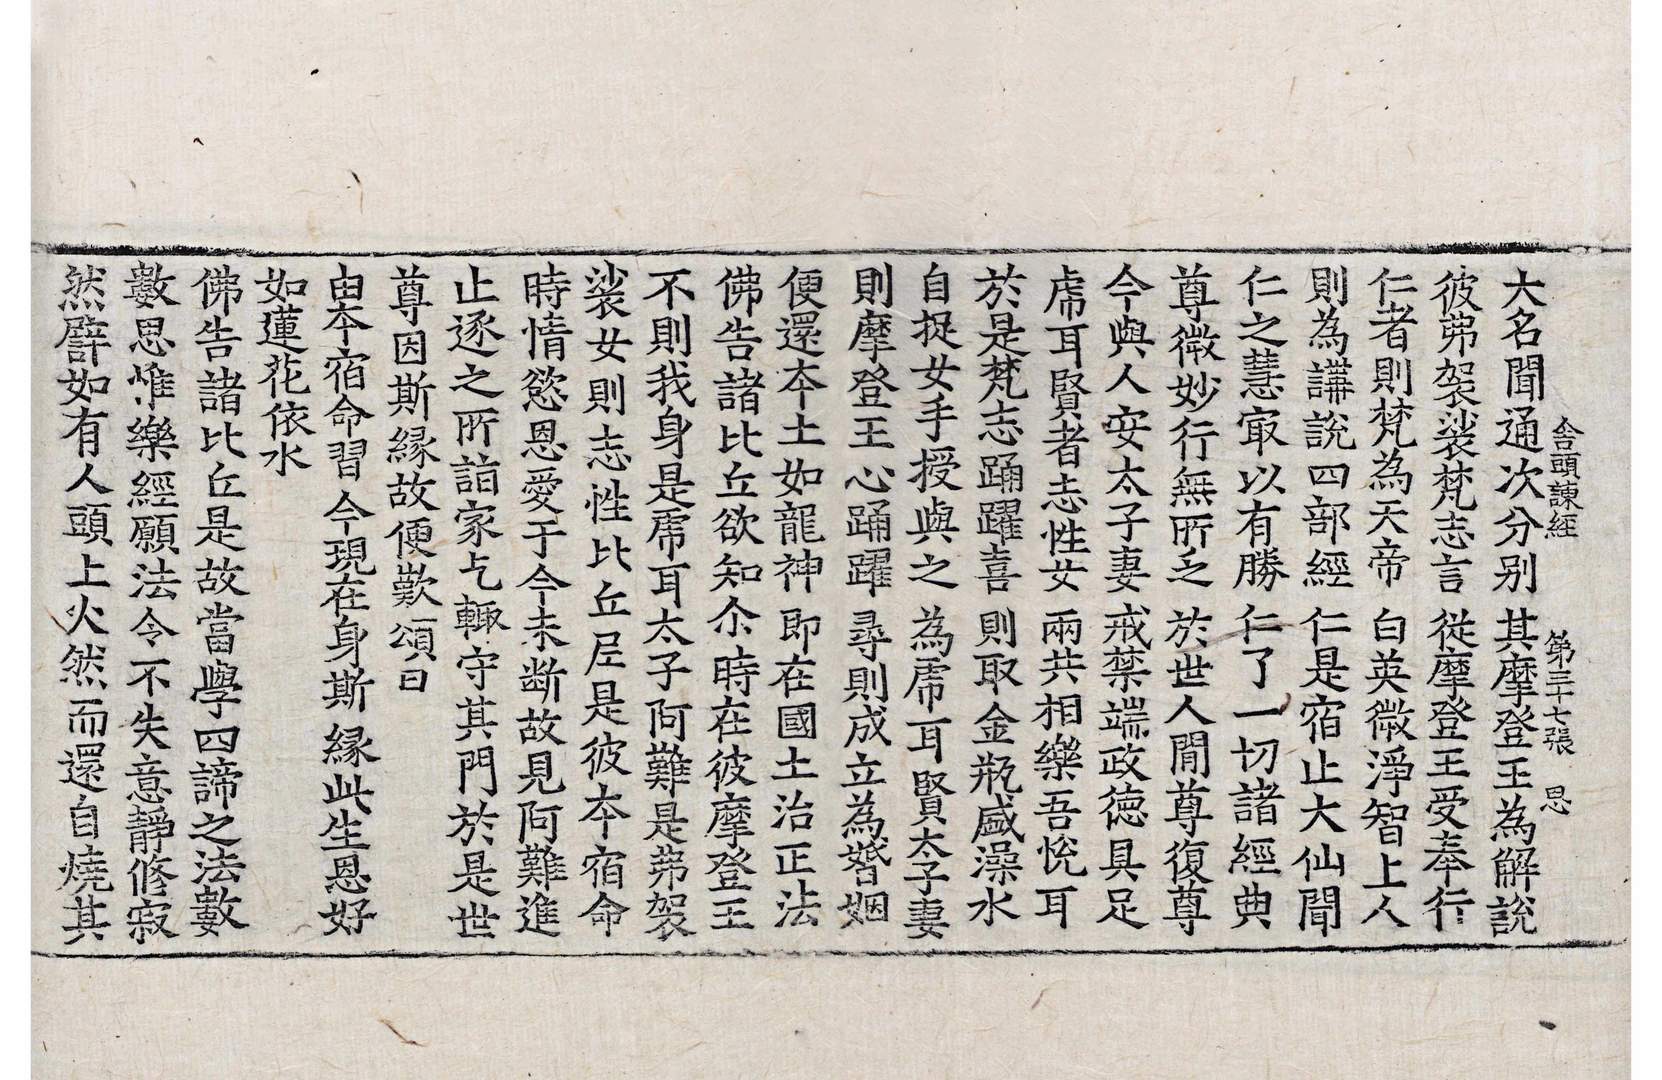 舎頭諫經 第三十七張 思
大名聞通次分別 其摩登王為解說
彼弗袈裟梵志言 從摩登王受奉行
仁者則梵為天帝 白英微淨智上人
則為講說四部經 仁是宿止大仙聞
仁之慧㝡以有勝 仁了一切諸經典
尊微妙行無所乏 於世人間尊復尊
今與人安太子妻 戒禁端政德具足
虎耳賢者志性女 兩共相樂吾悅耳
於是梵志踊躍喜 則取金瓶盛澡水
自捉女手授與之 為虎耳賢太子妻
則摩登王心踊躍 尋則成立為婚姻
便還本土如龍神 即在國土治正法
佛告諸比丘欲知尒時在彼摩登王
不則我身是虎耳太子阿難是弗袈
裟女則志性比丘尼是彼本宿命
時情慾恩愛于今未断故見阿難進
止逐之所詣家乞輙守其門於是世
尊因斯縁故便歎頌曰
由本宿命習今現在身斯縁此生恩好
如蓮花依水
佛告諸比丘是故當學四諦之法數
數思惟樂經願法令不失意靜修寂
然譬如有人頭上火然而還自燒其